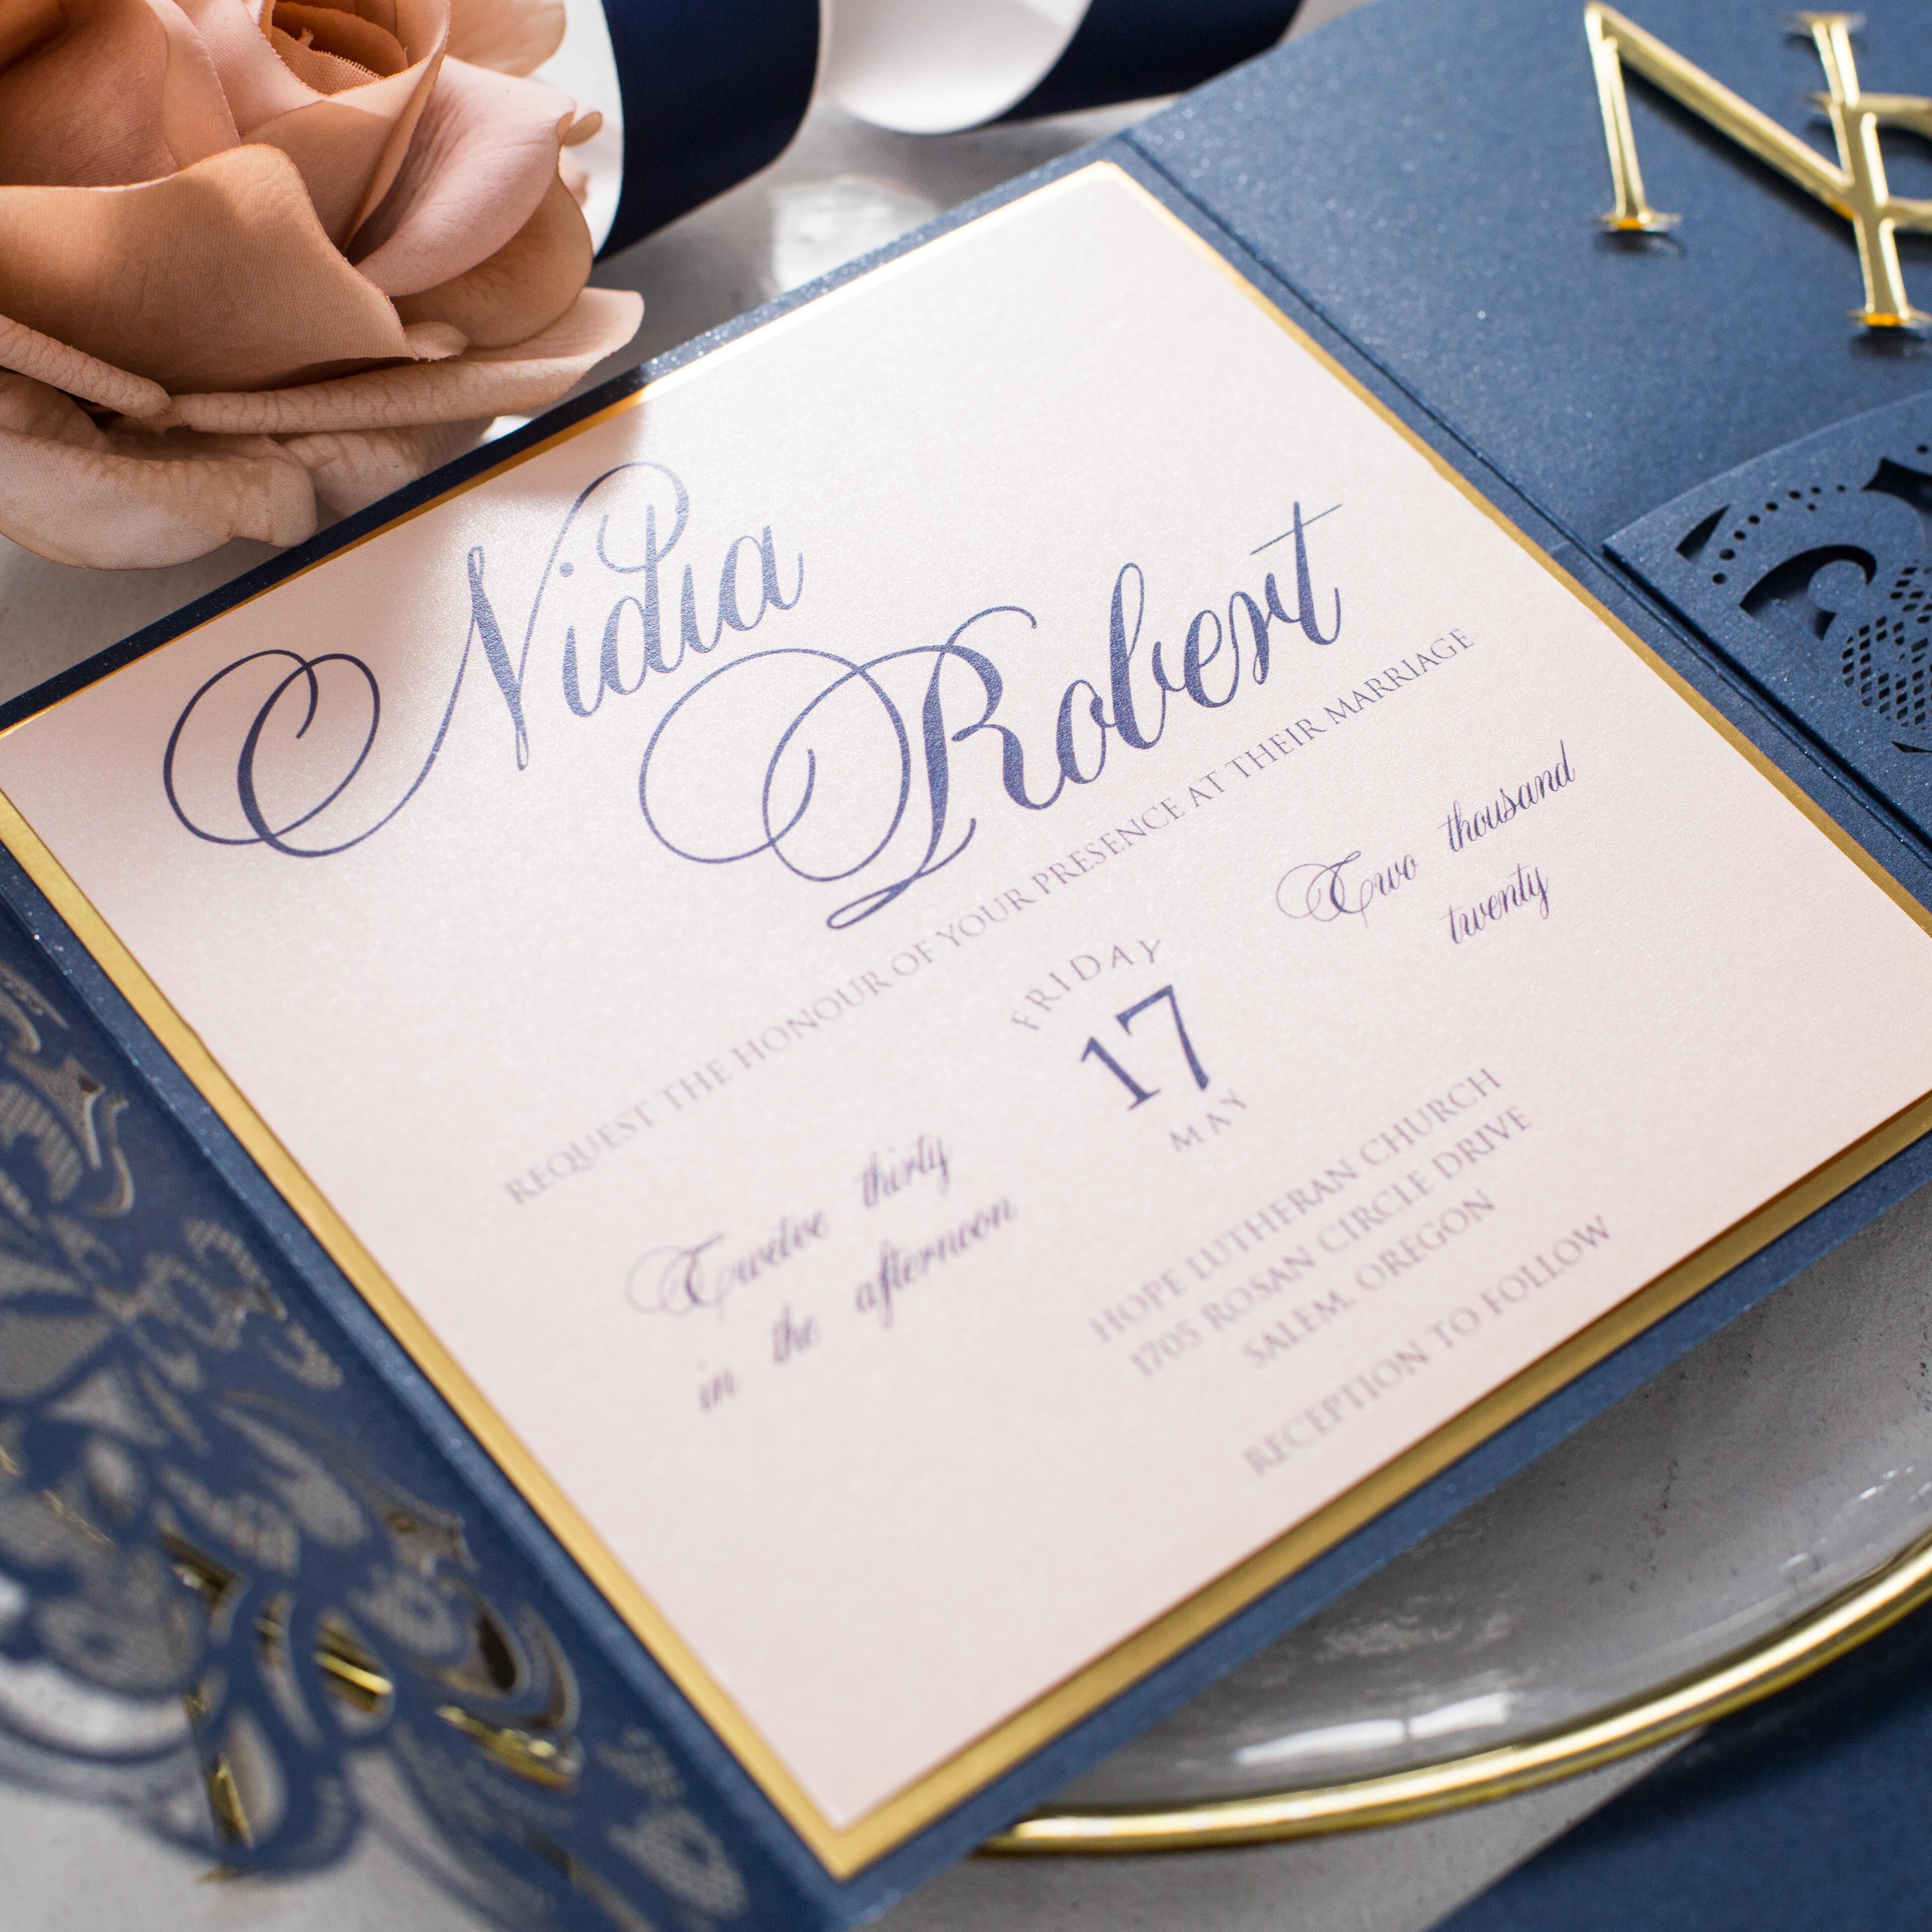 Nidia
Robert
REQUEST THE HONOUR OF YOUR PRESENCE AT THEIR MARRIAGE
Twelve thirty
in the afternoon
FRIDAY
17
MAY
Two thousand
twenty
HOPE LUTHERAN CHURCH
1705 ROSAN CIRCLE DRIVE
SALEM, OREGON
RECEPTION TO FOLLOW
N